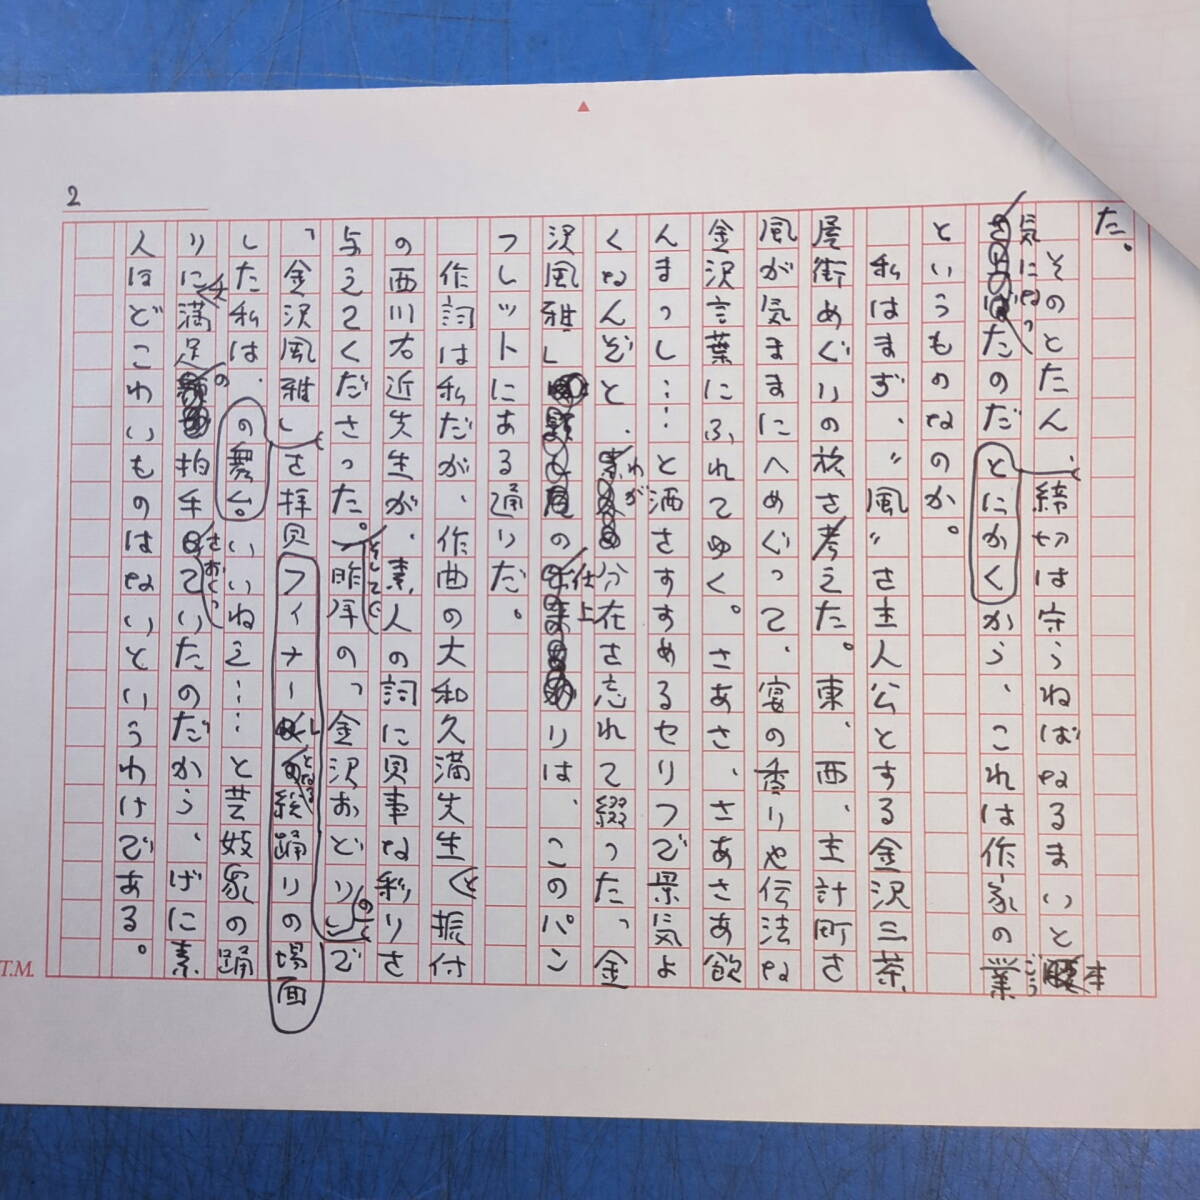 2
た。
そのとたん、締切は守らねばなるまいと
本
気になっ
たのだ とにかく から、これは作家の業
ごう
というものなのか。
私はまず、〝風〟を主人公とする金沢三茶
屋街めぐりの旅を考えた。東、西、主計町を
風が気ままにへめぐって、宴の香りや伝法な
金沢言葉にふれてゆく。さあさ、さあさあ飲
んまっし……と酒をすすめるセリフで景気よ
くなんぞと、
わが
分在を忘れて綴った「金
沢風雅」
の
仕上
りは、このパン
フレットにある通りだ。
作詞は私だが、作曲の大和久満先生と振付
の西川右近先生が、素人の詞に見事な彩りを
与えてくださった。
そして
昨年の「金沢おどり」
の
で
「金沢風雅」を拝見
フィナーレ
となる
総踊りの場面
した私は、
の舞台。
いいねえ……と芸妓家の踊
りに満足
の
拍手
をおくっ
ていたのだから、げに素
人ほどこわいものはないというわけである。
T.M.